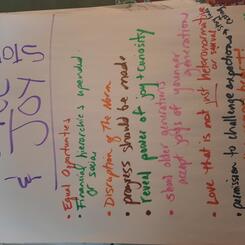 JOY
&
• Equal Opportunities
• Financial hierarchies upended
or social
• Disruption of the Norm
• progress should be made
• reveal power of joy + curiosity
• should older generations
accept joys of younger
generations
• Love that is not just heteronormative
or sexual
• permission to challenge expectations +